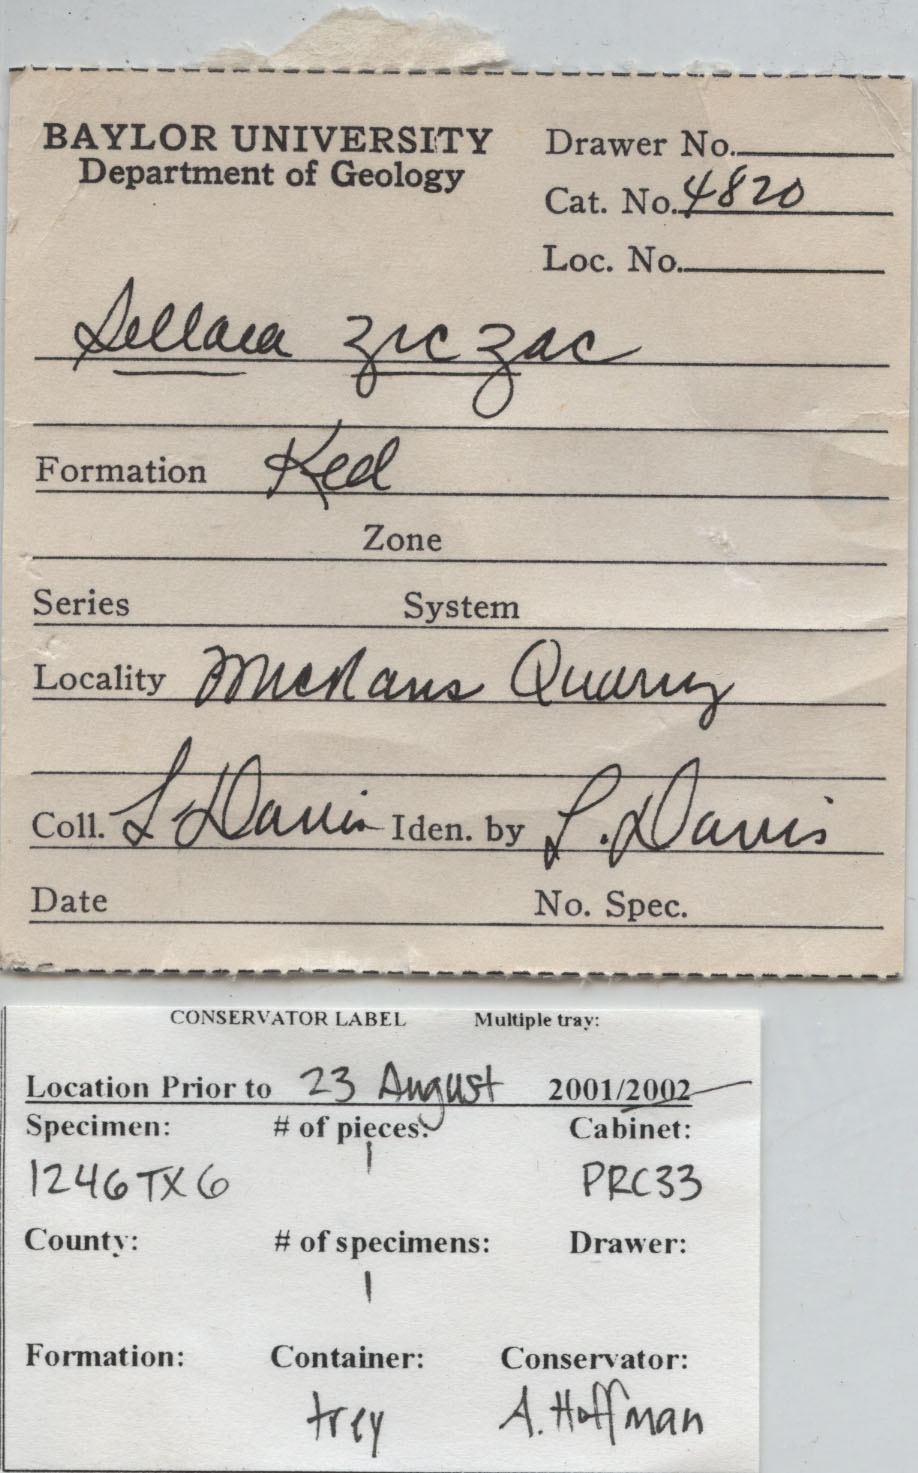 BAYLOR UNIVERSITY
Department of Geology
Drawer No.
Cat. No. 4820
Loc. No.
zic zac
Formation Ked
Zone
Series System
Locality Quarry
Coll. L. Davis Iden. by L. Davis
Date No. Spec.
CONSERVATOR LABEL Multiple tray:
Location Prior to 23 August 2001/2002
Specimen: # of pieces: Cabinet:
1246TX6 1 PRC33
County: # of specimens: Drawer:
1
Formation: Container: Conservator:
trey A. Hoffman